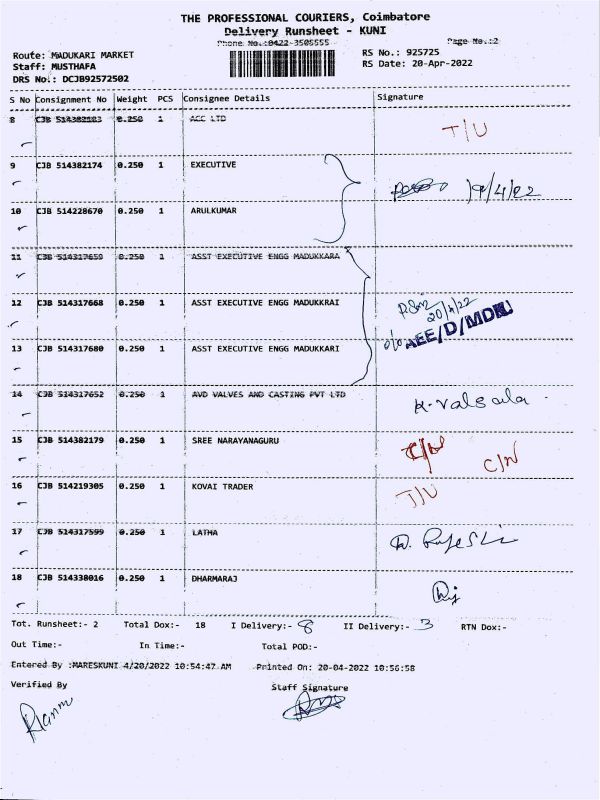 THE PROFESSIONAL COURIERS, Coimbatore
Delivery Runsheet - KUNI
Phone No.:0422-3505555 Page No.:2
Route: MADUKARI MARKET RS No.: 925725
Staff: MUSTHAFA RS Date: 20-Apr-2022
DRS No.: DCJB92572502
S No Consignment No Weight PCS Consignee Details Signature
8 CJB 514382183 0.250 1 ACC LTD T/U
9 CJB 514382174 0.250 1 EXECUTIVE 19/4/22
10 CJB 514228670 0.250 1 ARULKUMAR
11 CJB 514317659 0.250 1 ASST EXECUTIVE ENGG MADUKKARA
12 CJB 514317668 0.250 1 ASST EXECUTIVE ENGG MADUKKRAI 20/4/22
13 CJB 514317680 0.250 1 ASST EXECUTIVE ENGG MADUKKARI o/o AEE/D/MDKU
14 CJB 514317652 0.250 1 AVD VALVES AND CASTING PVT LTD K. Valsala
15 CJB 514382179 0.250 1 SREE NARAYANAGURU C/N
16 CJB 514219305 0.250 1 KOVAI TRADER T/U
17 CJB 514317599 0.250 1 LATHA
18 CJB 514338016 0.250 1 DHARMARAJ
Tot. Runsheet:- 2 Total Dox:- 18 I Delivery:- 8 II Delivery:- 3 RTN Dox:-
Out Time:- In Time:- Total POD:-
Entered By :MARESKUNI 4/20/2022 10:54:47 AM Printed On: 20-04-2022 10:56:58
Verified By Staff Signature